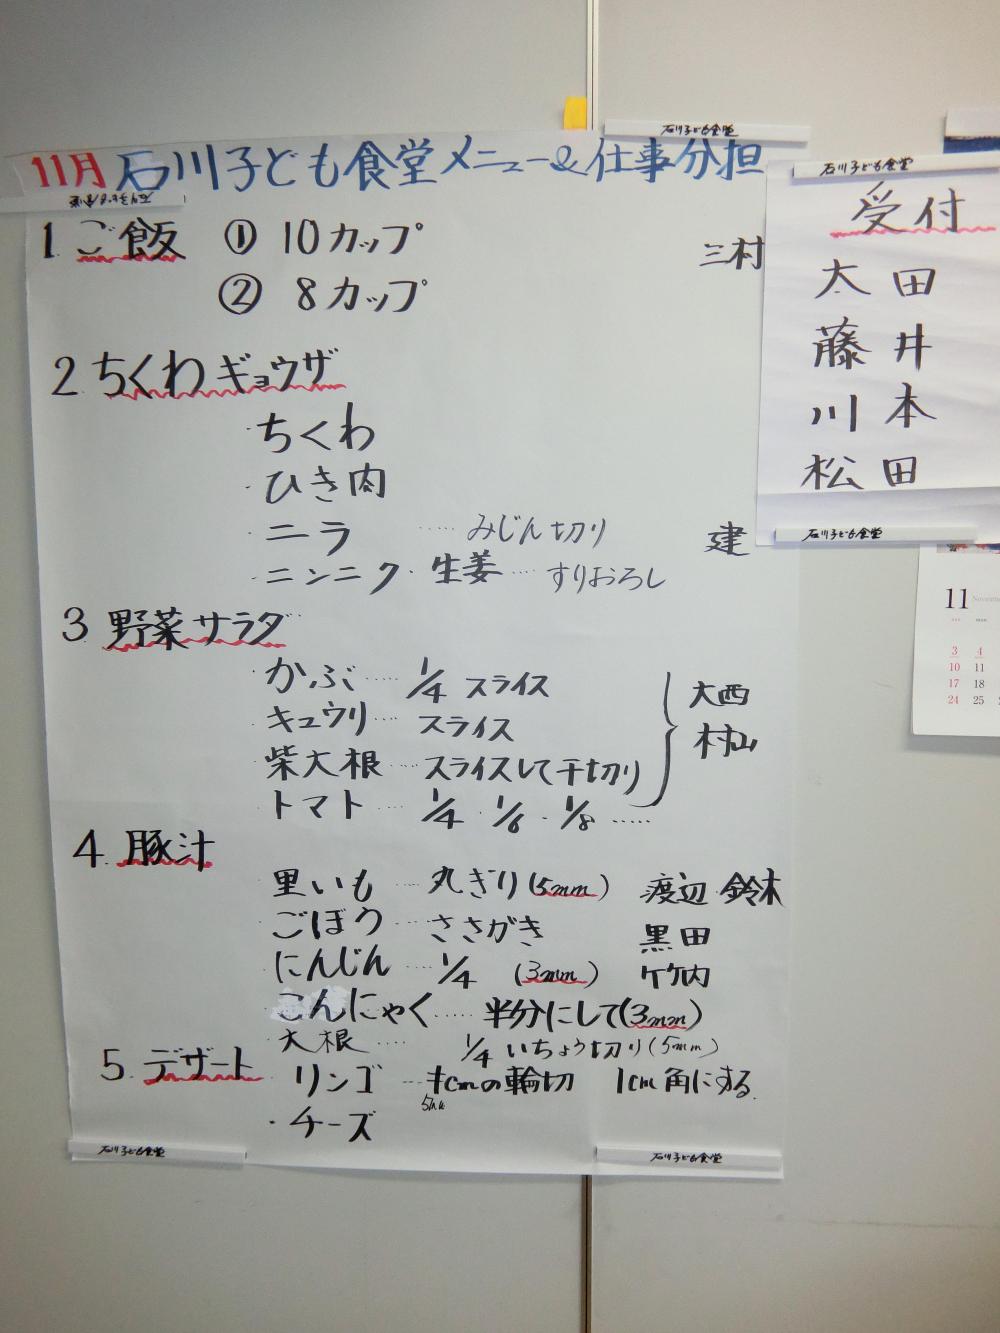 石川子ども食堂
11月 石川子ども食堂メニュー&仕事分担
1 ご飯 ① 10カップ 三村
② 8カップ
2 ちくわギョウザ
・ちくわ
・ひき肉
・ニラ ‥‥ みじん切り 建
・ニンニク・生姜 ‥‥ すりおろし
3 野菜サラダ
かぶ ‥‥ 1/4 スライス 大西
キュウリ ‥‥ スライス 村山
紫大根 ‥‥ スライスして千切り
トマト ‥‥ 1/4・1/6・1/8 ‥‥
4 豚汁
里いも ‥‥ 丸ぎり(5mm) 渡辺 鈴木
ごぼう ‥‥ ささがき 黒田
にんじん ‥‥ 1/4 (3mm) 竹内
こんにゃく ‥‥ 半分にして(3mm)
大根 ‥‥ 1/4 いちょう切り(5mm)
5 デザート リンゴ ‥‥ 1cmの輪切 1cm角にする
5mm
・チーズ
石川子ども食堂
石川子ども食堂
石川子ども食堂
受付
太田
藤井
川本
松田
石川子ども食堂
11 November
sun mon
3 4
10 11
17 18
24 25